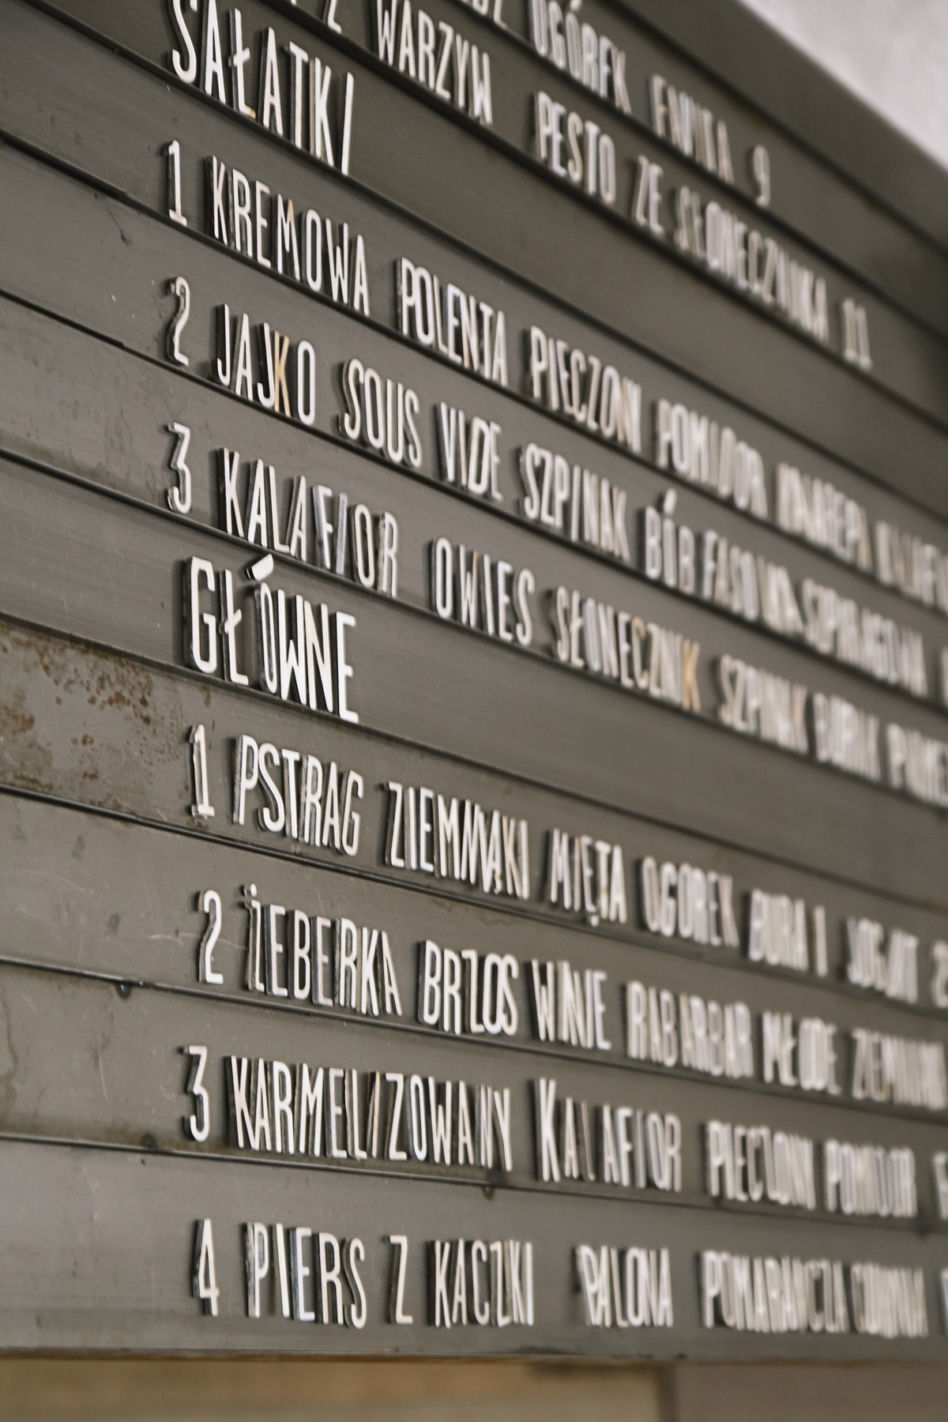 OGÓREK 9
Z WARZYW PESTO ZE SŁONECZNIKA 11
SAŁATKI
1 KREMOWA POLENTA PIECZONY POMIDOR
2 JAJKO SOUS VIDE SZPINAK BÓB FASOLKA SZPARAGOWA
3 KALAFIOR OWIES SŁONECZNIK SZPINAK BURAK
GŁÓWNE
1 PSTRĄG ZIEMNIAKI MIĘTA OGÓREK BURAK
2 ŻEBERKA BRZOS WINIE RABARBAR MŁODE
3 KARMELIZOWANY KALAFIOR PIECZONY POMIDOR
4 PIERŚ Z KACZKI PALONA POMARAŃCZA